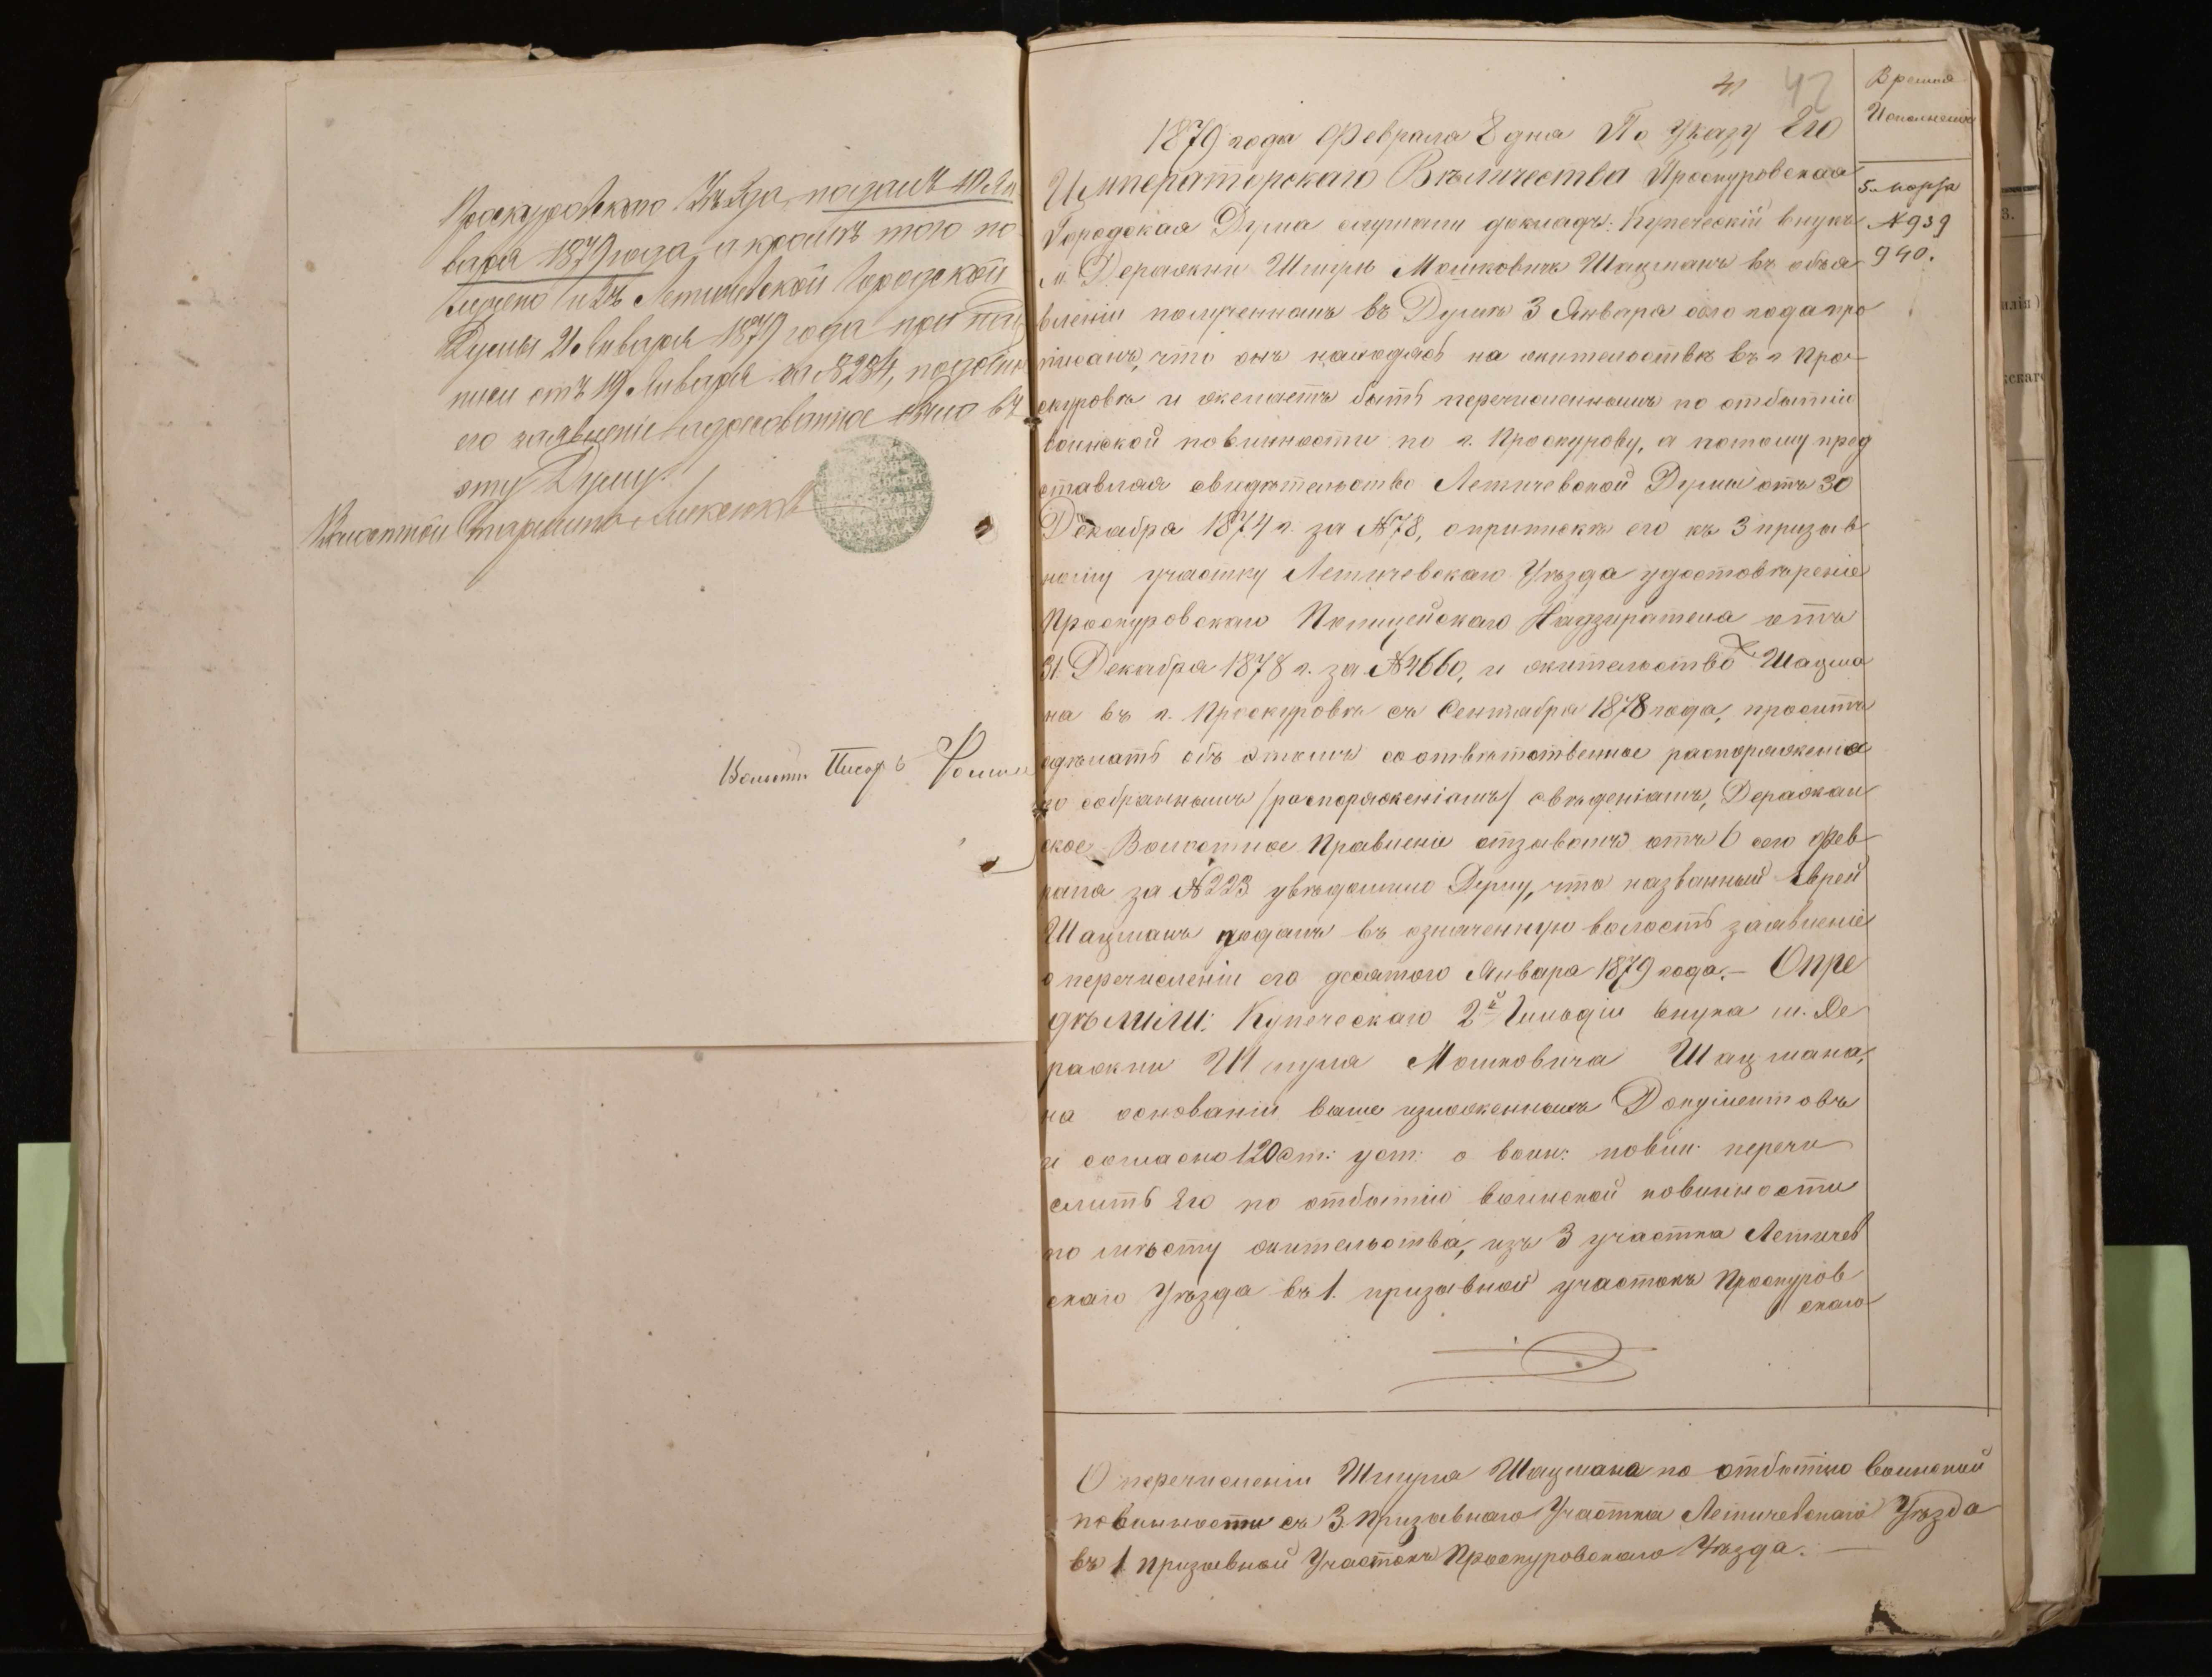 Проскуровскаго Уѣзда, подалъ 10 Ян
варя 1879 года, а кромѣ того по
лучено изъ Летичевской Городской
Думы 21 Января 1879 года при над
писи отъ 19 Января за № 284, подобное
его заявленіе адресованное было въ
эту Думу.
Волостной Старшина
Волостн. Писарь
41 42
1879 года Февраля 8 дня По Указу Его
Императорскаго Величества Проскуровская
Городская Дума слушали докладъ: Купеческій внукъ
м. Деражни Шмуль Мошковичъ Шацманъ въ объя
вленіи полученномъ въ Думѣ 3 Января сего года про
писалъ, что онъ находясь на жительствѣ въ г. Про-
скуровѣ и желаетъ быть перечисленнымъ по отбытію
воинской повинности по г. Проскурову, а потому пред
ставляя свидѣтельство Летичевской Думы отъ 30
Декабря 1874 г. за № 78, о припискѣ его къ 3 призыв
ному участку Летичевскаго Уѣзда удостовѣреніе
Проскуровскаго Полицейскаго Надзирателя отъ
31 Декабря 1878 г. за № 4660, и жительство Шацма
на въ г. Проскуровѣ съ Сентября 1878 года, проситъ
сдѣлать объ этомъ соотвѣтственное распоряженіе
по собраннымъ /распоряженіямъ/ свѣденіямъ, Деражнян
ское Волостное Правленіе отзывомъ отъ 6 сего Фев
раля за № 223 увѣдомило Думу, что названный Еврей
Шацманъ подалъ въ означенную волость заявленіе
о перечисленіи его десятого Января 1879 года. – Опре
дѣлили: Купеческаго 2й Гильдіи внука м. Де
ражни Шмуля Мошковича Шацмана,
на основаніи выше изложенныхъ Документовъ
и согласно 120 ст: уст: о воин: повин: перечи
слить Его по отбытію воинской повинности
по мѣсту жительства, изъ 3 участка Летичев
скаго Уѣзда въ 1. призывной участокъ Проскуров
скаго
Время
Исполненія
5 марта
№ 939
940.
О перечисленіи Шмуля Шацмана по отбытію воинской
повинности съ 3. Призывнаго Участка Летичевскаго Уѣзда
въ 1 Призывной Участокъ Проскуровскаго Уѣзда. —